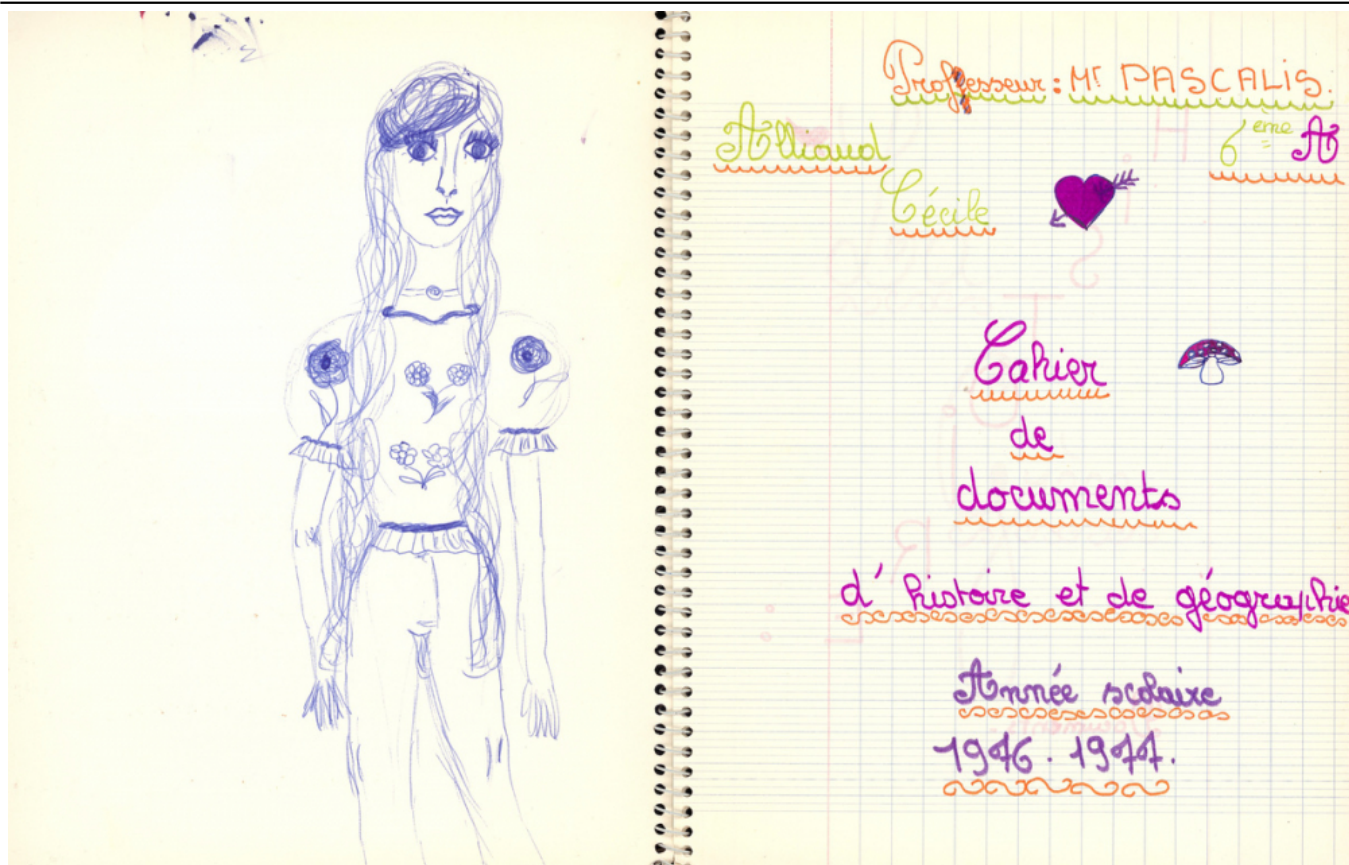 Professeur : Mr PASCALIS.
Alliaud 6ème A
Cécile
Cahier
de
documents
d'histoire et de géographie
Année scolaire
1976. 1977.